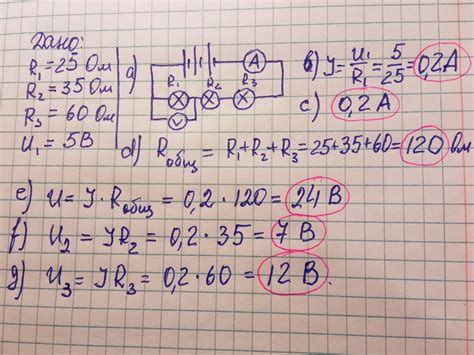 Дано:
R₁ = 25 Ом
R₂ = 35 Ом
R₃ = 60 Ом
U₁ = 5В
a)
A
R₁ R₂ R₃
V
b) J = U₁/R₁ = 5/25 = 0,2А
c) 0,2 А
d) Rобщ = R₁+R₂+R₃ = 25+35+60 = 120 Ом
e) U = J · Rобщ = 0,2 · 120 = 24 В
f) U₂ = JR₂ = 0,2 · 35 = 7 В
g) U₃ = JR₃ = 0,2 · 60 = 12 В.